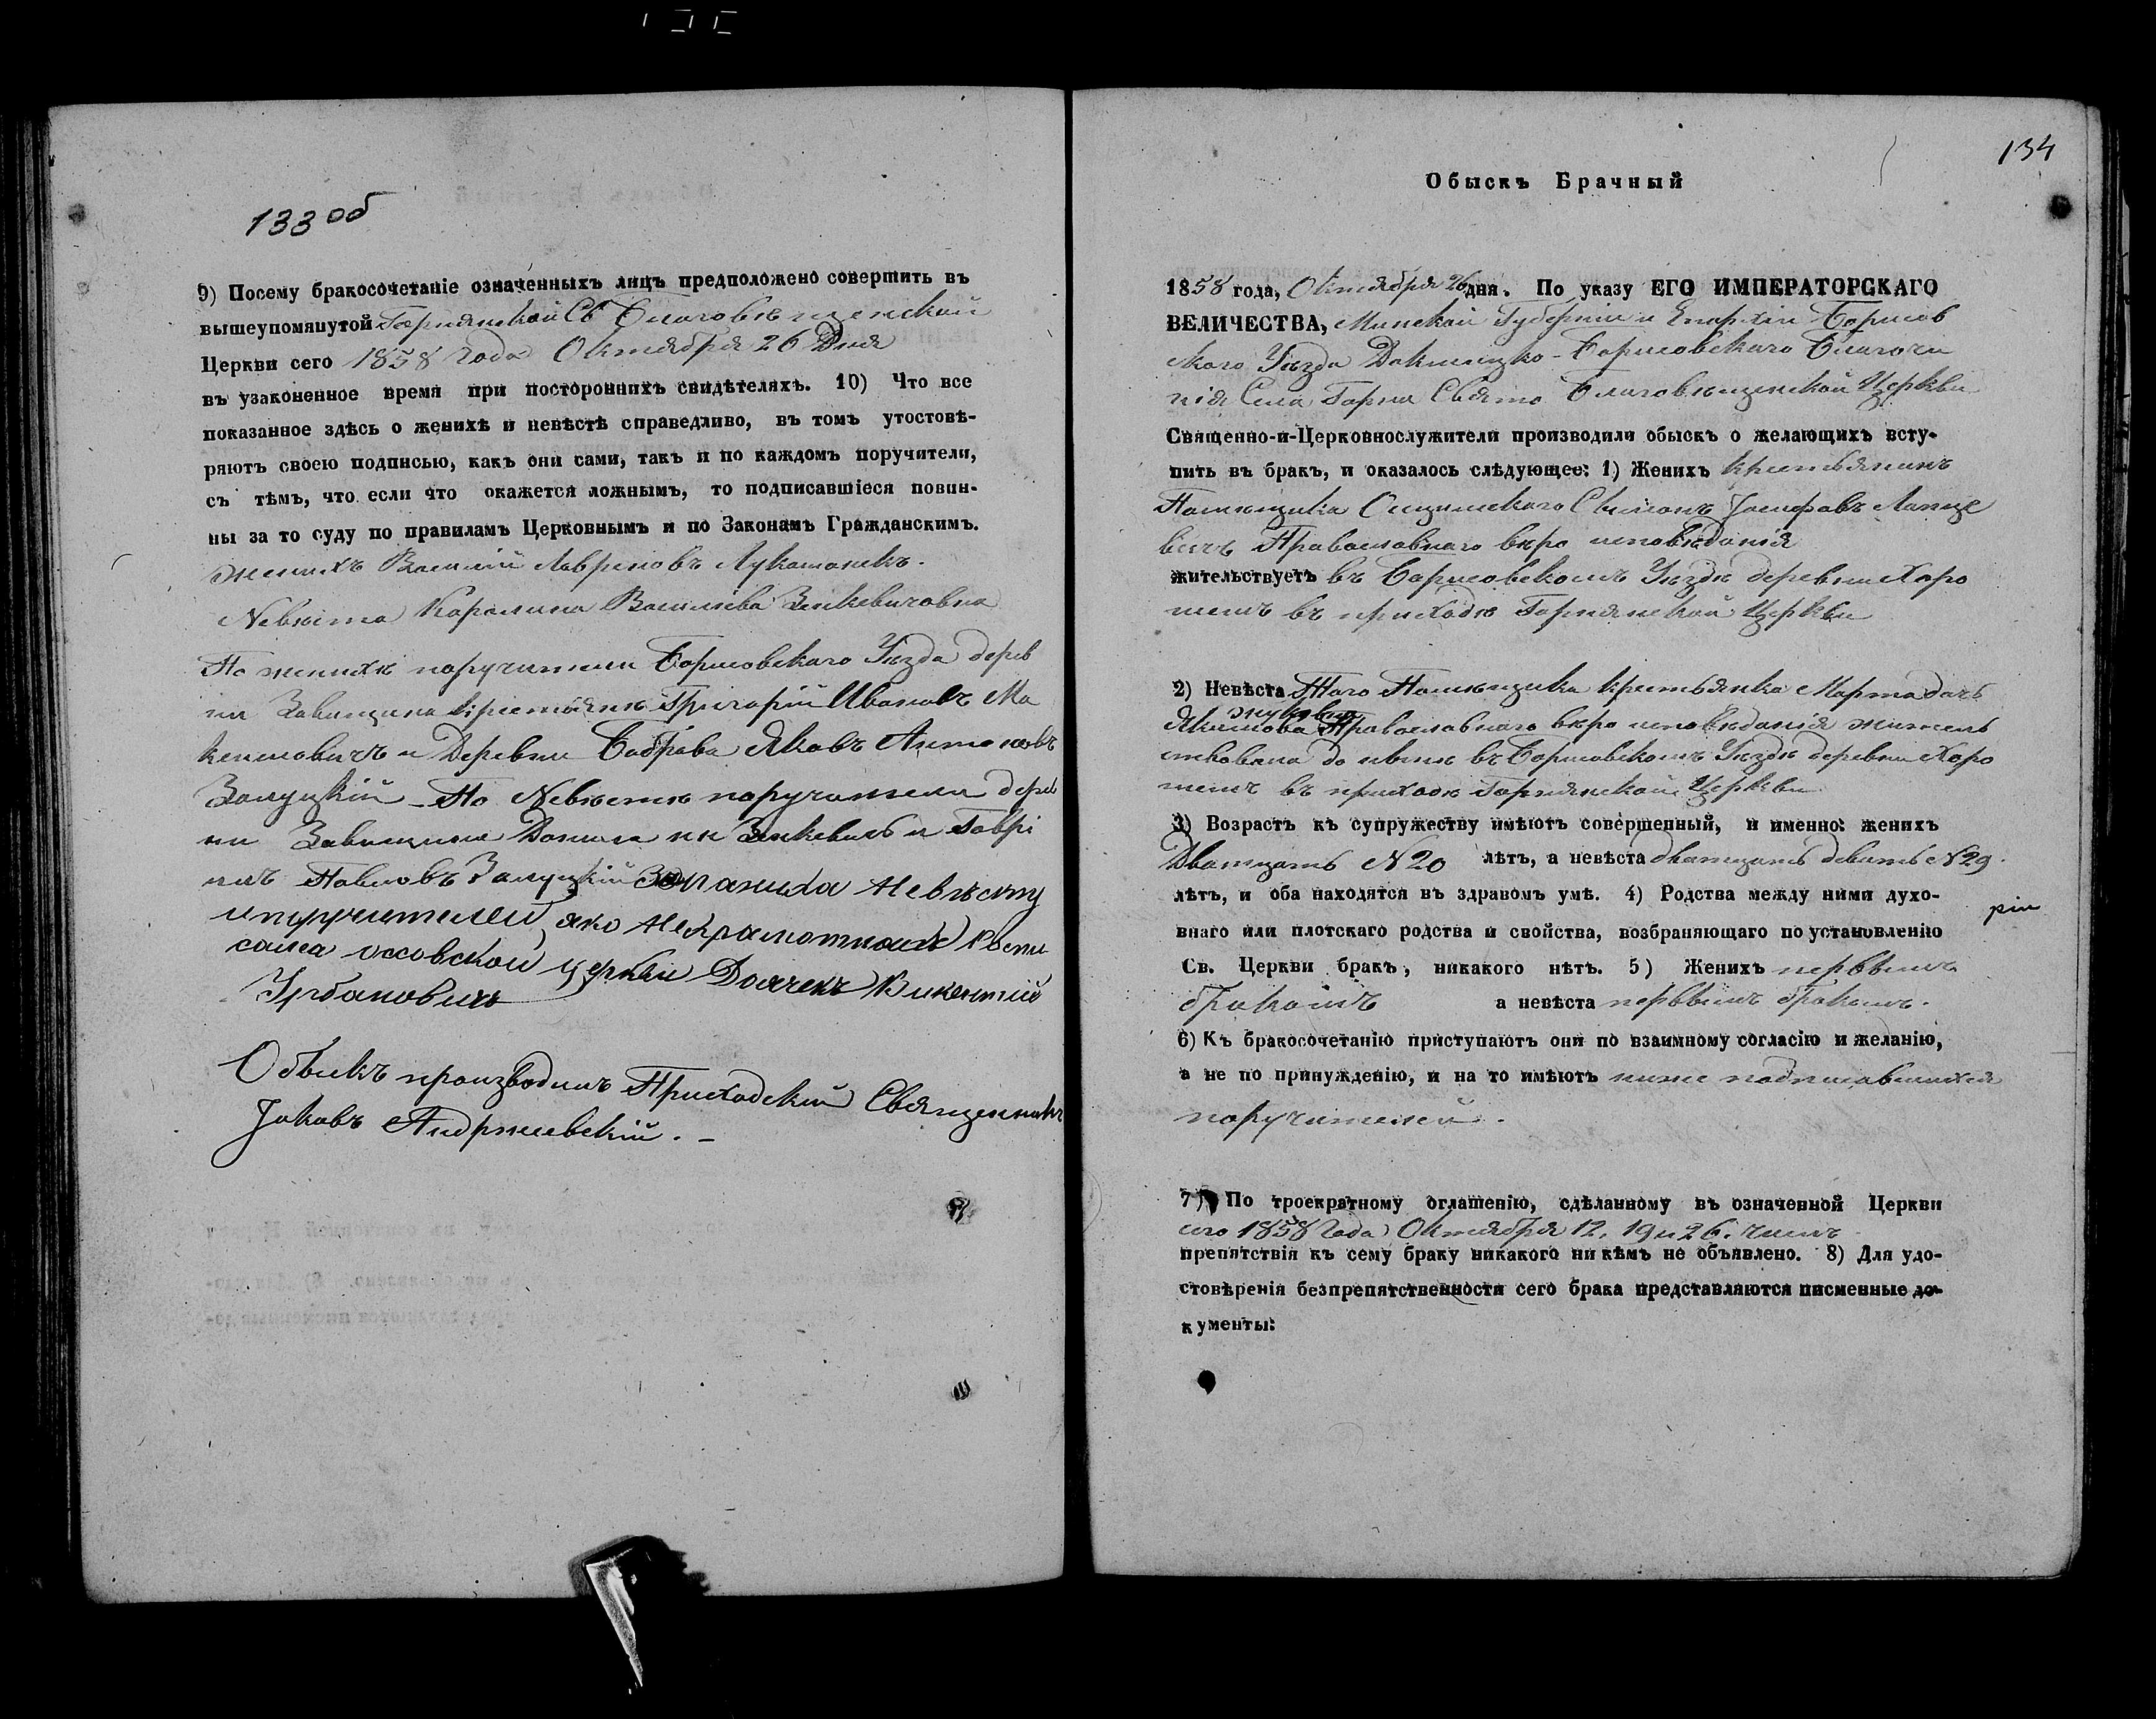 133 об
9) Посему бракосочетаніе означенныхъ лицъ предположено совершить въ
вышеупомянутой Гарнянской Св Благовѣщенской
Церкви сего 1858 года Октября 26 Дня
въ узаконенное время при постороннихъ свидѣтеляхъ. 10) Что все
показанное здѣсь о женихѣ и невѣстѣ справедливо, въ томъ утостовѣ-
ряютъ своею подписью, какъ они сами, такъ и по каждомъ поручители,
съ тѣмъ, что если что окажется ложнымъ, то подписавшіеся повин-
ны за то суду по правиламъ Церковнымъ и по Законамъ Гражданскимъ.
женихъ Василій Лавреновъ Лукашонекъ.
Невѣста Каролина Васильева Зенкевичовна
По женихѣ поручители Борисовскаго Уѣзда дерев
ни Завищина Григорій Ивановъ Ма
и Деревни Бабрава Яковъ Антоновъ
Залуцкій По Невѣстѣ поручители дерев
ни Завищина Зенкевичъ и Гаври
илъ Павловъ Залуцкій За жениха Невѣсту
и пуручителей яко неграмотныхъ
церкви Дьячекъ Викентій
Урбановичъ
Обыскъ производилъ Приходскій Священникъ
Іаковъ Андржіевскій.
134
Обыскъ Брачный
1858 года, Октября 26 дня. По указу ЕГО ИМПЕРАТОРСКАГО
ВЕЛИЧЕСТВА, Минской Губерніи и Епархіи Борисов
скаго Уѣзда Докшицко-Борисовскаго Благочи
нія Села Гарни Свято Благовѣщенской Церкви
Священно-и-Церковнослужители производили обыскъ о желающихъ всту-
пить въ бракъ, и оказалось слѣдующее: 1) Женихъ крестьянинъ
Помѣщика Іосифовъ Лапце
вичъ Православнаго вѣро исповѣданія
жительствуетъ въ Борисовскомъ Уѣздѣ деревни Харо
шемъ въ приходѣ Гарнянской Церкви
2) Невѣста Того Помѣщика крестьянка Марта
Якимова Православнаго вѣро исповѣданія житель
ствовала до нынѣ въ Борисовскомъ Уѣздѣ деревни Харо
шемъ въ приходѣ Гарнянской Церкви
3) Возрастъ къ супружеству имѣютъ совершенный, и именно: женихъ
Дватцать N 20 лѣтъ, а невѣста дватцать девять N 29.
лѣтъ, и оба находятся въ здравомъ умѣ. 4) Родства между ними духо-
внаго или плотскаго родства и свойства, возбраняющаго по установленію
Св. Церкви бракъ, никакого нѣтъ. 5) Женихъ первымъ
бракомъ а невѣста первымъ бракомъ.
6) Къ бракосочетанію приступаютъ они по взаимному согласію и желанію,
а не по принужденію, и на то имѣютъ ниже подписавшихся
поручителей.
7) По троекратному оглашенію, сдѣланному въ означенной Церкви
сего 1858 года Октября 12, 19 и 26. чиселъ
препятствія къ сему браку никакого ни кѣмъ не объявлено. 8) Для удо-
стовѣренія безпрепятственности сего брака представляются писменные до-
кументы: